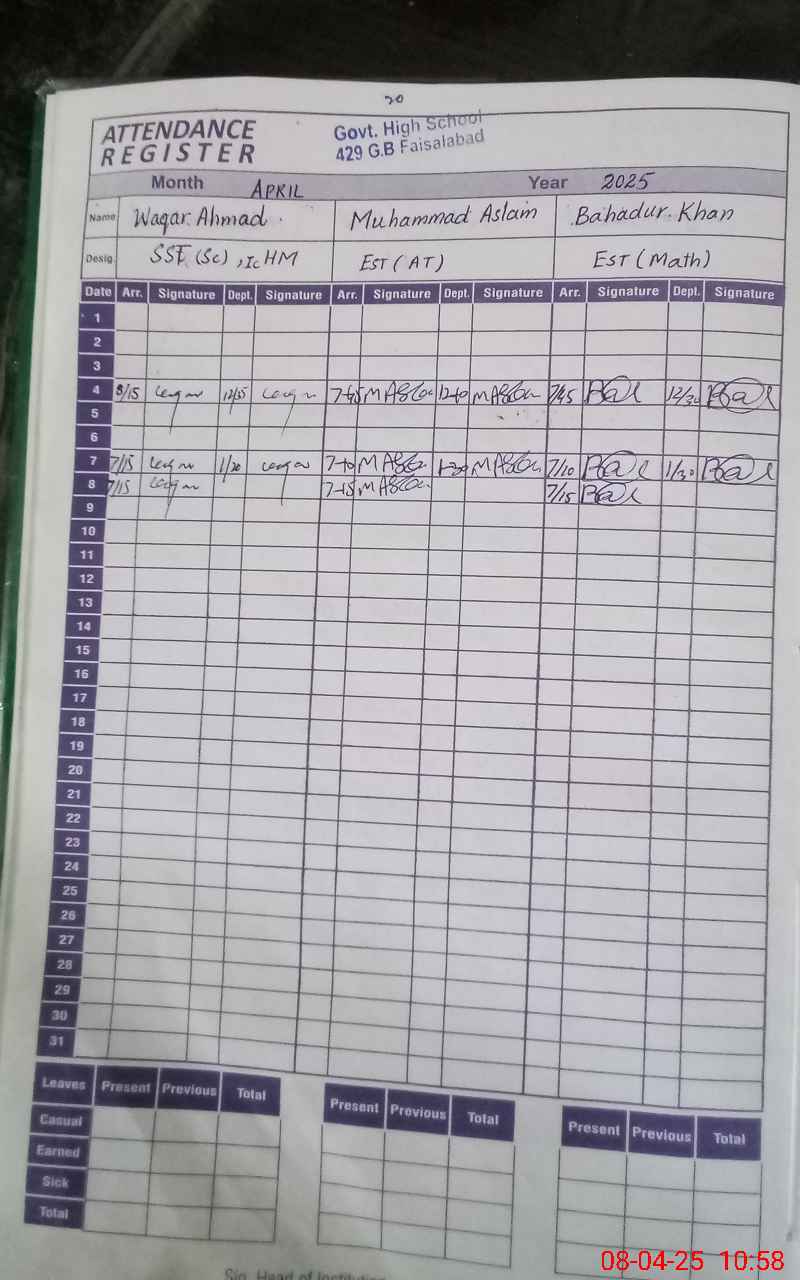 20
ATTENDANCE REGISTER
Govt. High School
429 G.B Faisalabad
Month APRIL Year 2025
Name Waqar Ahmad Muhammad Aslam Bahadur Khan
Desig. SSE (Sc), Ic HM EST (AT) EST (Math)
Date Arr. Signature Dept. Signature Arr. Signature Dept. Signature Arr. Signature Dept. Signature
1
2
3
4 8/15 7-45 12-10 7/45 12/30
5
6
7 7/15 1/30 7-10 1-30 7/10 1/30
8 7/15 7-15 7/15
9
10
11
12
13
14
15
16
17
18
19
20
21
22
23
24
25
26
27
28
29
30
31
Leaves Present Previous Total Present Previous Total Present Previous Total
Casual
Earned
Sick
Total
Sig. Head of Institution
08-04-25 10:58